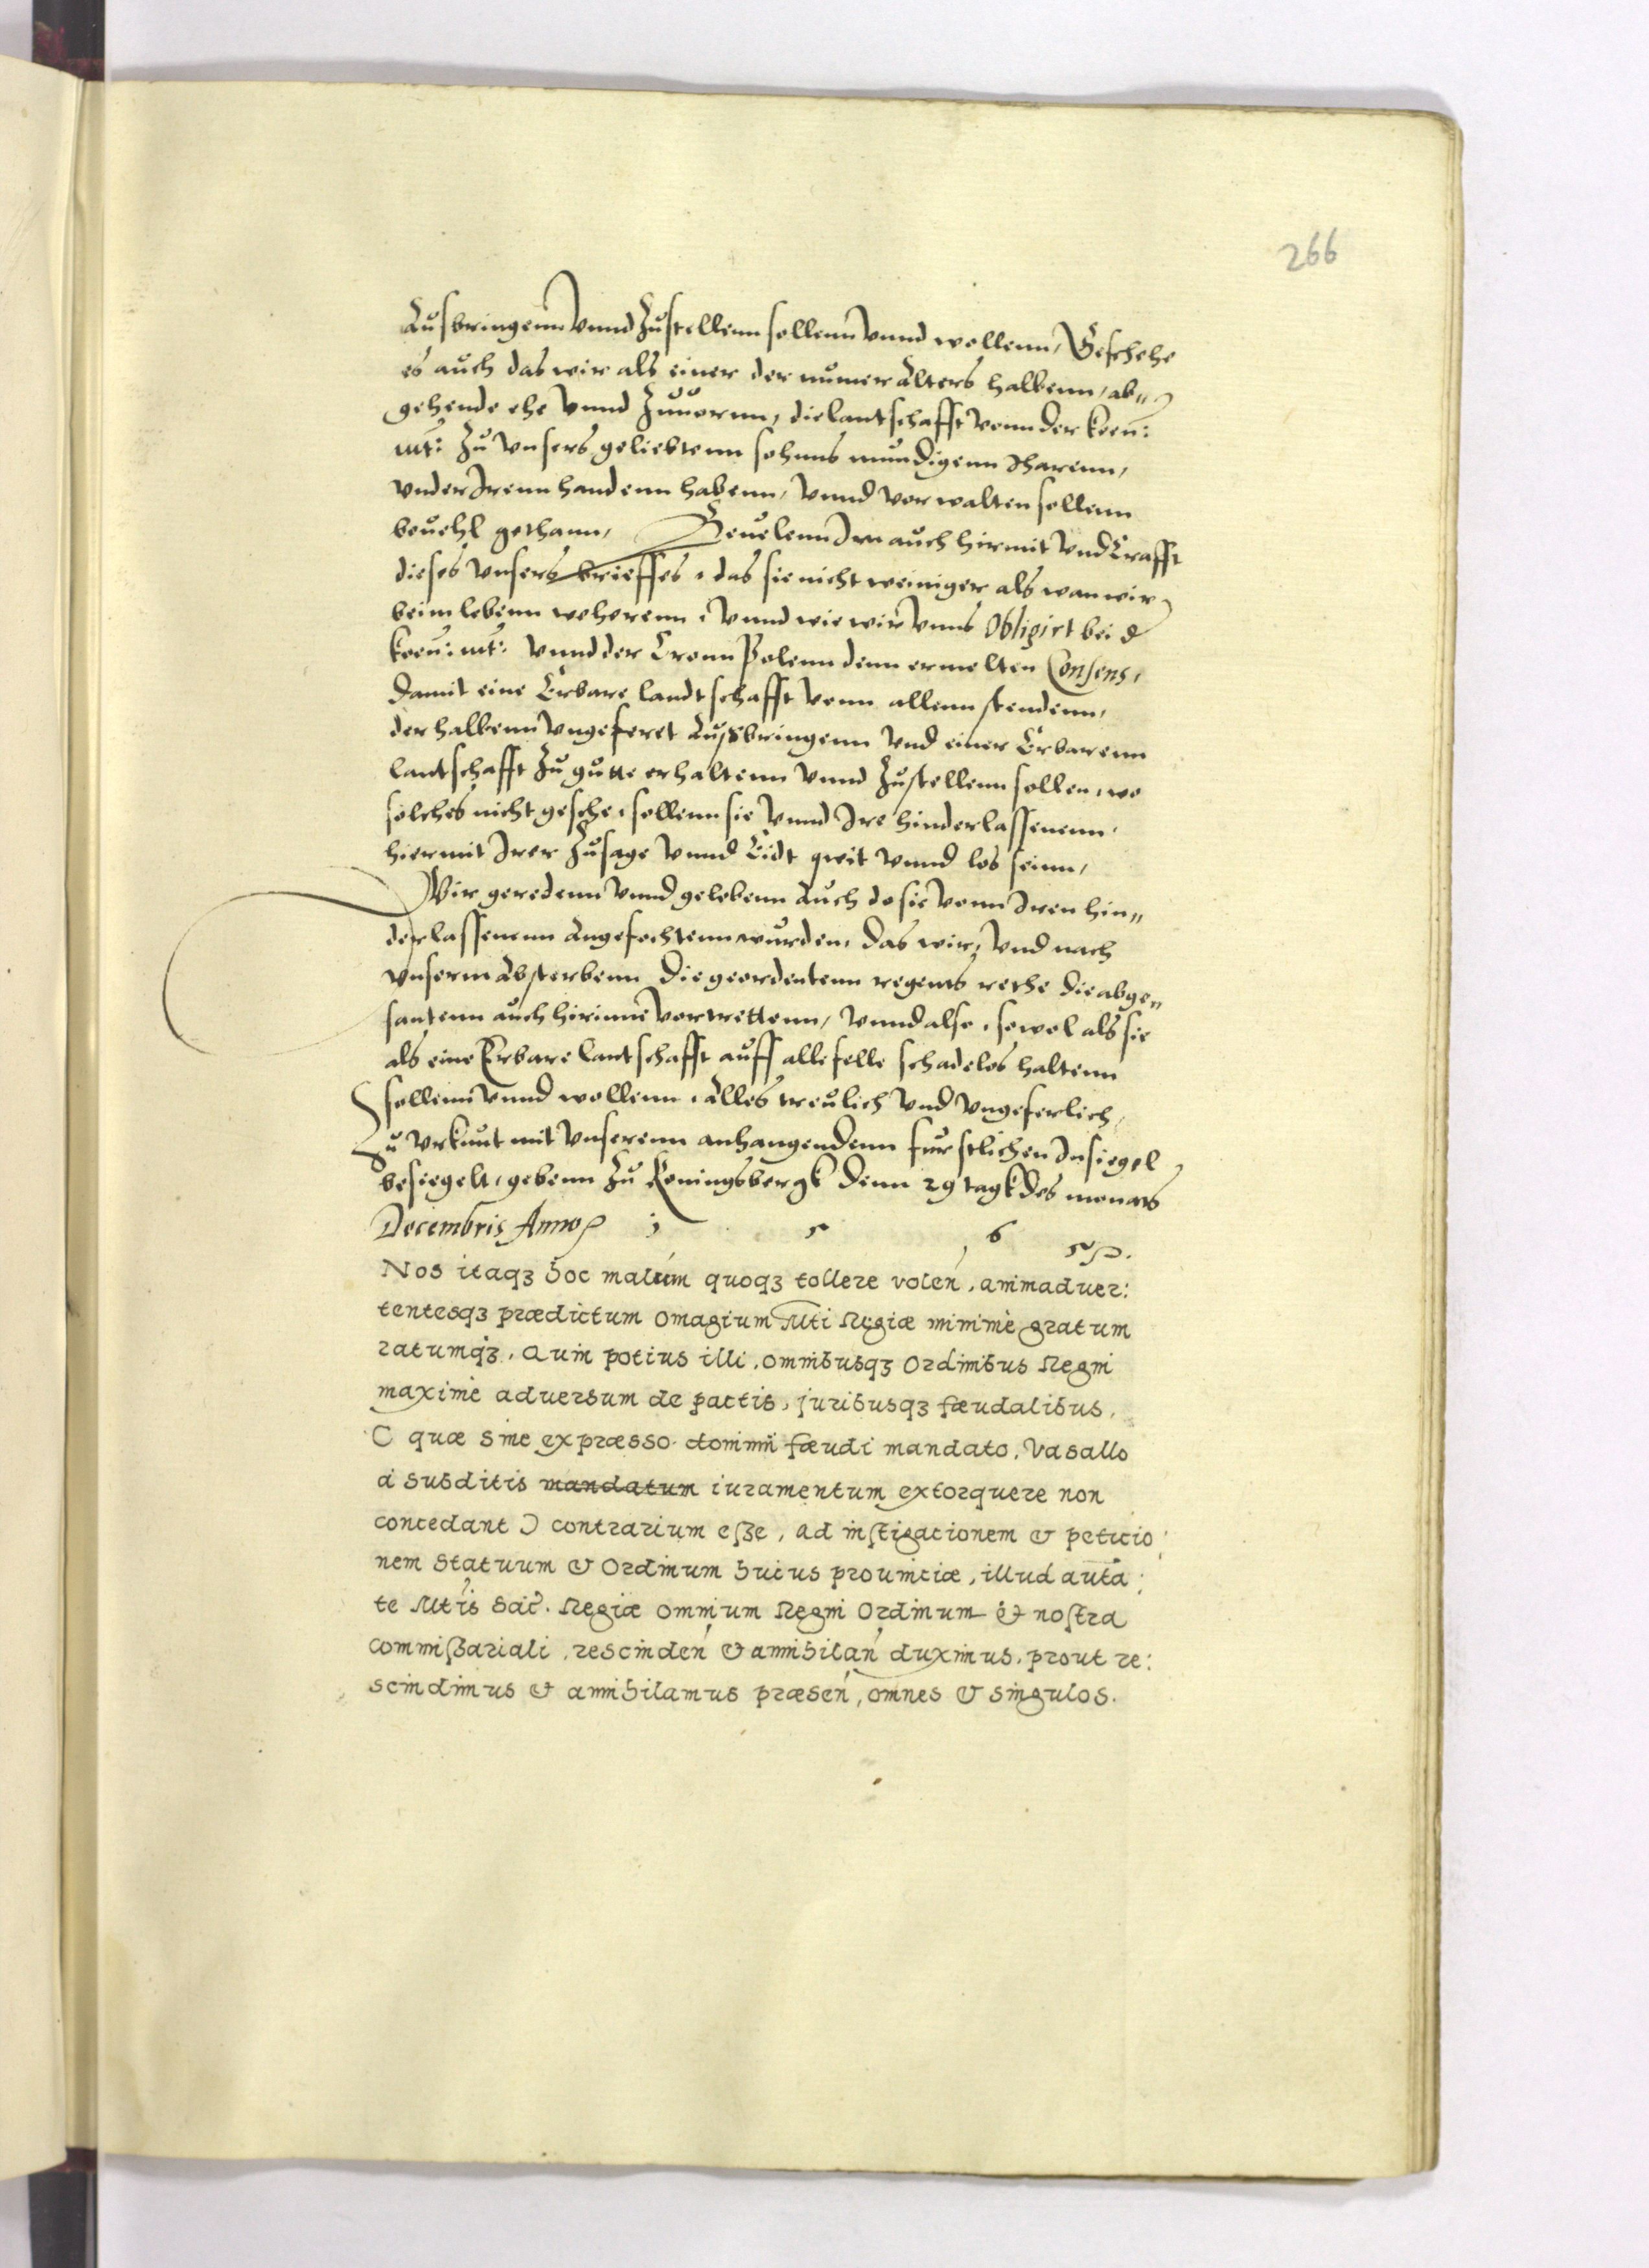 266
Ausbringenn vnnd Zustellenn sollenn vnnd wollenn, Geschehe
es auch das wir als einer der numer alters halbenn, ab„
gehende ehe vnnd Zuuorenn, die lantschafft vonn der koen:
mt: Zu vnsers geliebtenn sohnns mundigenn Iharenn,
vnder Irenn handenn habenn, vnnd vorwalten sollenn
beuehl gethann, Beuelenn Inen auch hirmit vnd Crafft
dieses vnsers brieffes, das sie nicht weiniger als wan wir
beim lebenn weherenn, vnnd wie wir vnns Obligirt bei d
koen: mt: vnnd der Cronn Polenn denn ermelten Consens,
damit eine Erbare landtschafft vonn allenn stendenn,
derhalbenn vngeferet Außbringenn vnd einer Erbarenn
lantschafft Zu gutte erhaltenn vnnd Zustellenn sollen, wo
solches nicht gesche, sollenn sie vnnd Ire hinderlassenenn,
hiermit Irer Zusage vnnd Eidt qweit vnnd los seinn,
Wir geredenn vnnd gelobenn Auch do sie vonn Iren hin„
derlassenenn Angefochtenn wurden, das wir, vnd nach
vnserm Absterbenn die geordentenn regents rethe die abge„
santenn auch hirinne vortrettenn, vnnd also, sowol als sie
als eine Erbare lantschafft auff alle felle schadelos haltenn
sollenn vnnd wollenn, Alles treulich vnd vngeferlich,
Zu vrkunt mit vnserenn anhangendenn furstlichen Insiegel
besiegelt, gebenn Zu Koningsbergk denn 29 tagk des monats
Decembris Anno 1 5 6 5.
Nos itaqꝫ hoc malum quoqꝫ tollere volen, animaduer:
tentesqꝫ prædictum omagium Mti Regiæ minimè gratum
ratumqꝫ. Quin potius illi, omnibusqꝫ Ordinibus Regni
maximè aduersum de pactis, juribusqꝫ fæudalibus,
C quæ sine expræsso domini fæudi mandato, Vasallo
à subditis mandatum iuramentum extorquere non
concedant Ɔ contrarium eßse, ad instigacionem & peticio:
nem Statuum & Ordinum huius prouinciæ, illud auta:
te Mtis Sac. Regiæ omnium Regni Ordinum & nostra
commißariali, rescinden & annihilan duximus, prout re:
scindimus & annihilamus præsen, omnes & singulos.